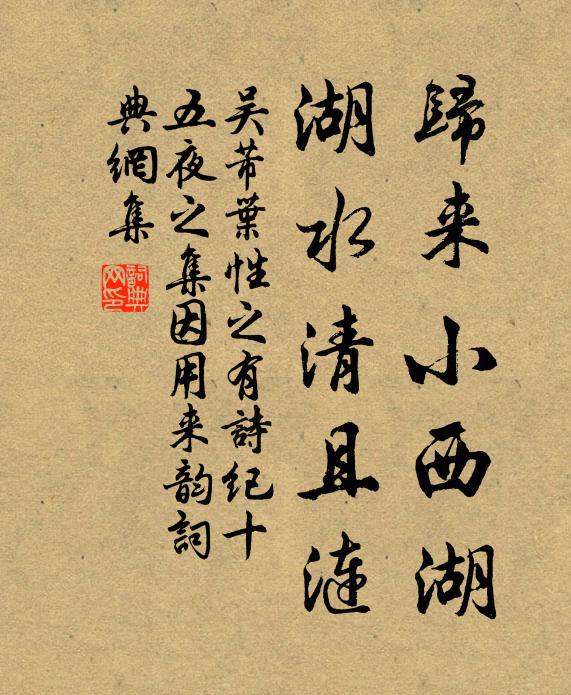 歸来小西湖
湖水清且漣
吴芾葉性之有詩纪十
五夜之集因用来韵詞
典網集
詞典网印